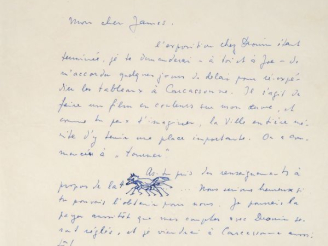 Mon cher James -
l'exposition chez Drouin étant
terminée, je te demanderai - à toi et à Joe - de
m'accorder quelques jours de délai pour ré-expé-
dier les tableaux à Carcassonne. Il s'agit de
faire un film en couleurs sur mon œuvre, et
comme tu peux l'imaginer, la Ville entière mé-
rite d'y tenir une place importante. On a com-
mencé à "tourner".
As-tu pris des renseignements à
propos de la
Nous serions heureux si
tu pouvais l'obtenir pour nous. Je pourrais la
payer aussitôt que mes comptes avec Drouin se-
ront réglés, et je viendrai à Carcassonne aussi-
tôt